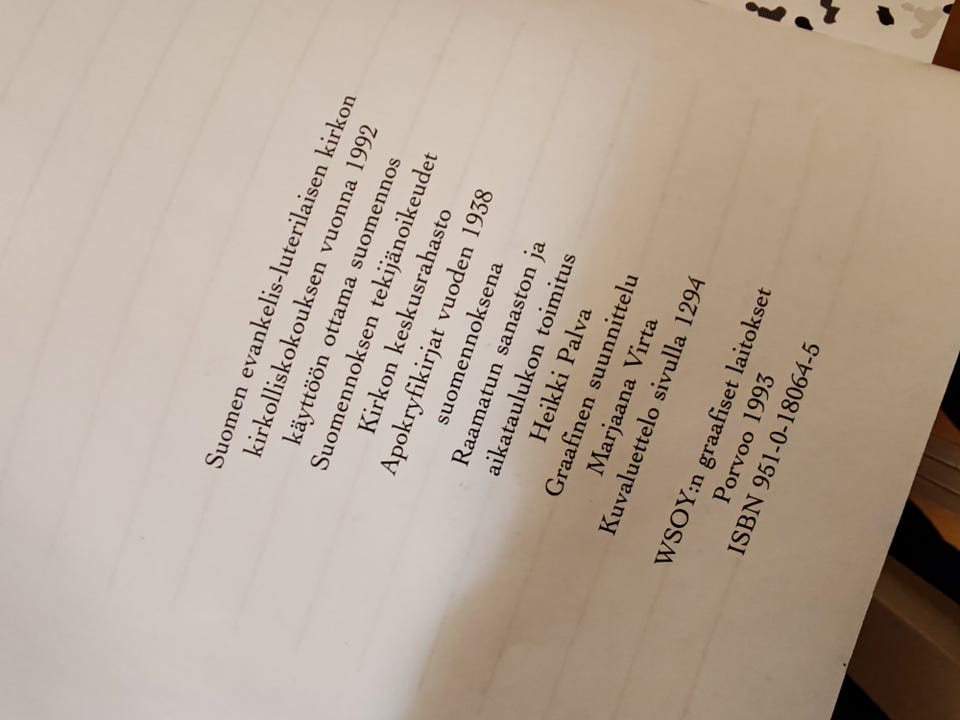 Suomen evankelis-luterilaisen kirkon
kirkolliskokouksen vuonna 1992
käyttöön ottama suomennos
Suomennoksen tekijänoikeudet
Kirkon keskusrahasto
Apokryfikirjat vuoden 1938
suomennoksena
Raamatun sanaston ja
aikataulukon toimitus
Heikki Palva
Graafinen suunnittelu
Marjaana Virta
Kuvaluettelo sivulla 1294
WSOY:n graafiset laitokset
Porvoo 1993
ISBN 951-0-18064-5